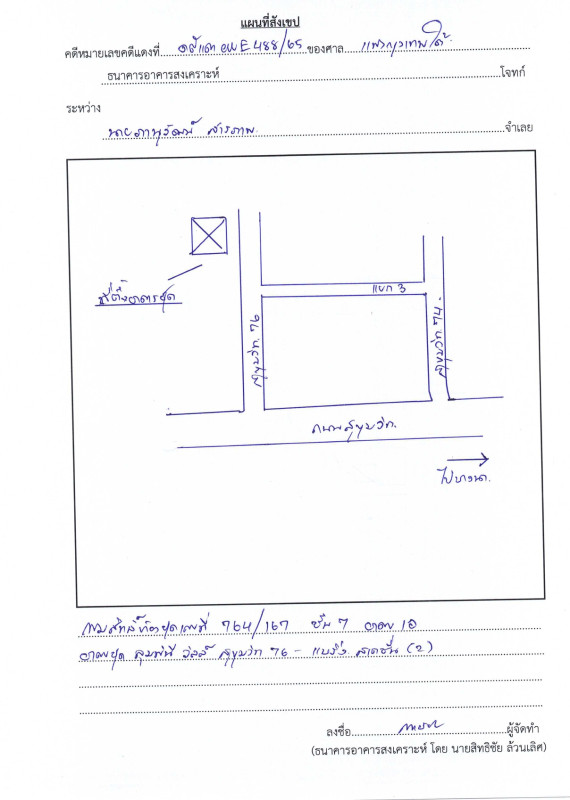 แผนที่สังเขป
คดีหมายเลขคดีแดงที่ E488/65 ของศาล แพ่งกรุงเทพใต้
ธนาคารอาคารสงเคราะห์ โจทก์
ระหว่าง
นายภานุวัฒน์ สารภาพ จำเลย
ที่ตั้งอาคารชุด
แยก 3
สุขุมวิท 76
สุขุมวิท 74
ถนนสุขุมวิท
ไปบางนา
กรรมสิทธิ์ห้องชุดเลขที่ 764/167 ชั้น 7 อาคาร
อาคารชุด ลุมพินี วิลล์ สุขุมวิท 76 - แบริ่ง สเตชั่น (2)
ลงชื่อ ผู้จัดทำ
(ธนาคารอาคารสงเคราะห์ โดย นายสิทธิชัย ล้วนเลิศ)